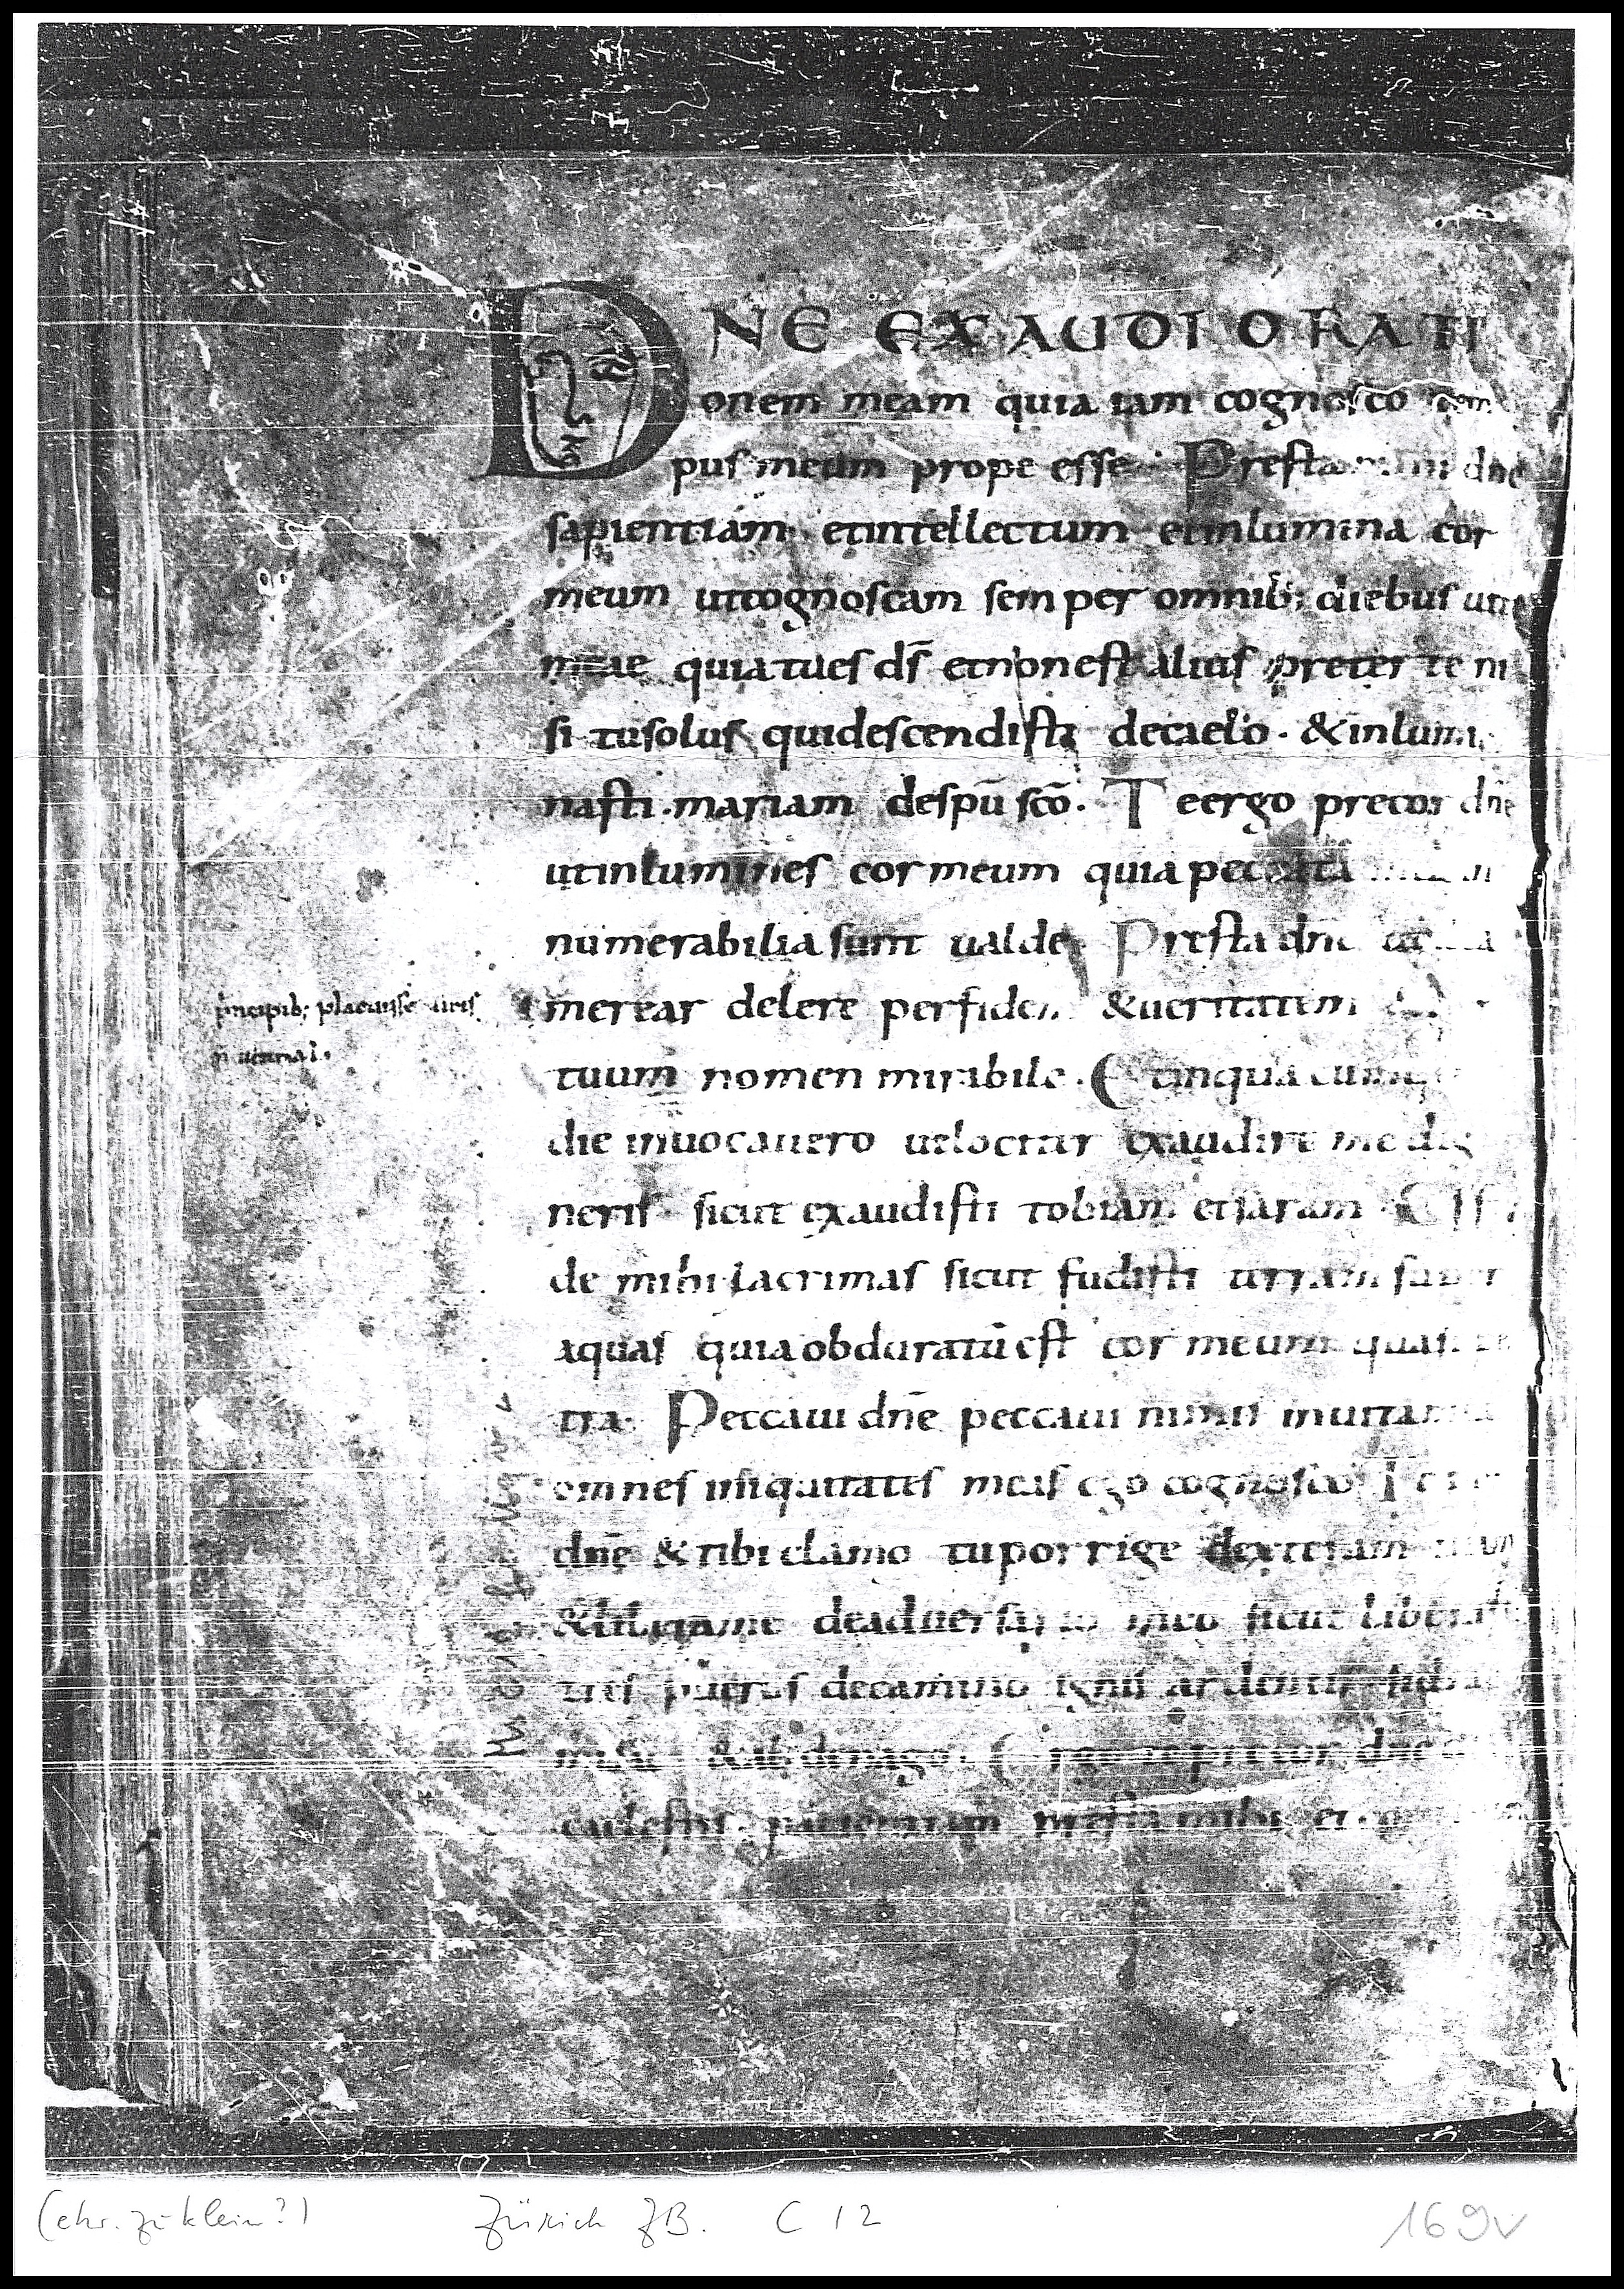 DNE EXAUDI ORATI
onem meam quia iam cognosco tem
pus meum prope esse. Presta mihi dne
sapientiam etintellectum etinlumina cor
meum utcognoscam semper omnib; diebus uite
meae quiatues ds̄ etnonest alius preter te ni
si tusolus quidescendisti decaelo. &inlumi
nasti. mariam despū scō. Teergo precor dn̄e
utinlumines cor meum quia peccata
numerabilia sunt ualde, Presta dne
merear delere perfidem &ueritatem
tuum nomen mirabile. Etinqua cumq;
die inuocauero uelociter exaudire me dig
neris sicut exaudisti tobiam etsaram
de mihi lacrimas sicut fudisti terram super
aquas quiaobduratū est cor meum quasi
tra. Peccaui dn̄e peccaui nimis inuita mea
omnes iniquitates meas ego cognosco
dn̄e &tibi clamo tuporrige dexteram
&libera me deaduersario meo sicut liberasti
tres pueros decamino ignis ardentis
precor dne
caelestis. patientiam presta mihi et
principib; placuisse uiris
Zürich ZB. C 12
169v
(ehr. zu klein?)